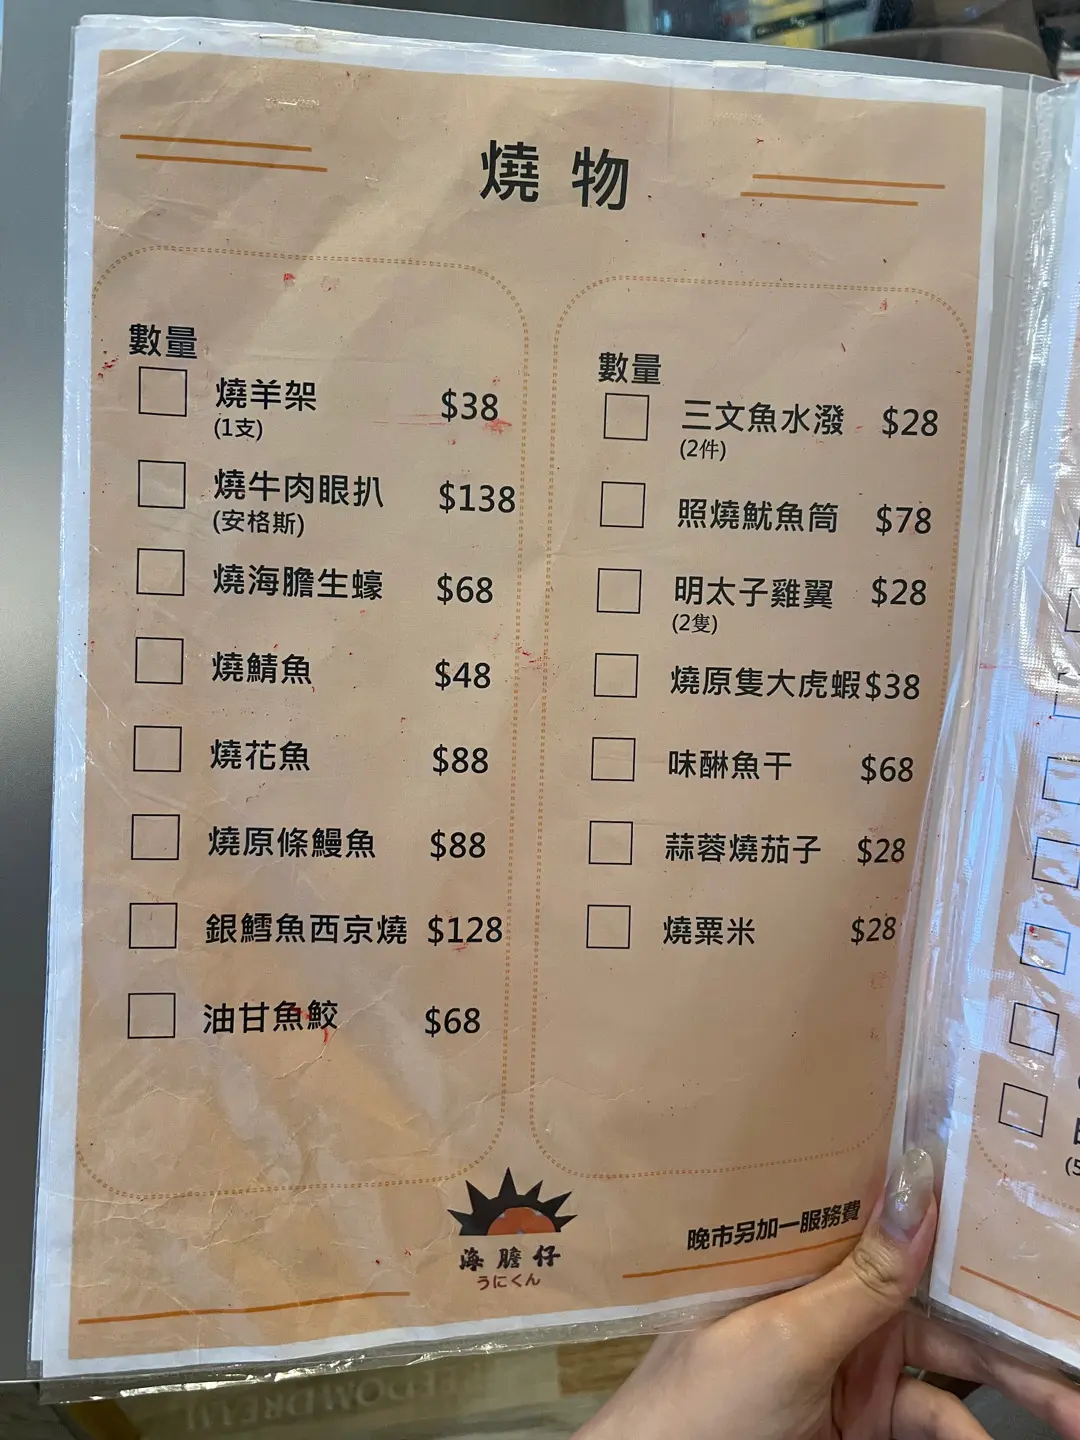 燒物
數量
燒羊架 $38
(1支)
燒牛肉眼扒 $138
(安格斯)
燒海膽生蠔 $68
燒鯖魚 $48
燒花魚 $88
燒原條鰻魚 $88
銀鱈魚西京燒 $128
油甘魚鮫 $68
數量
三文魚水潑 $28
(2件)
照燒魷魚筒 $78
明太子雞翼 $28
(2隻)
燒原隻大虎蝦 $38
味醂魚干 $68
蒜蓉燒茄子 $28
燒粟米 $28
海膽仔
うにくん
晚市另加一服務費